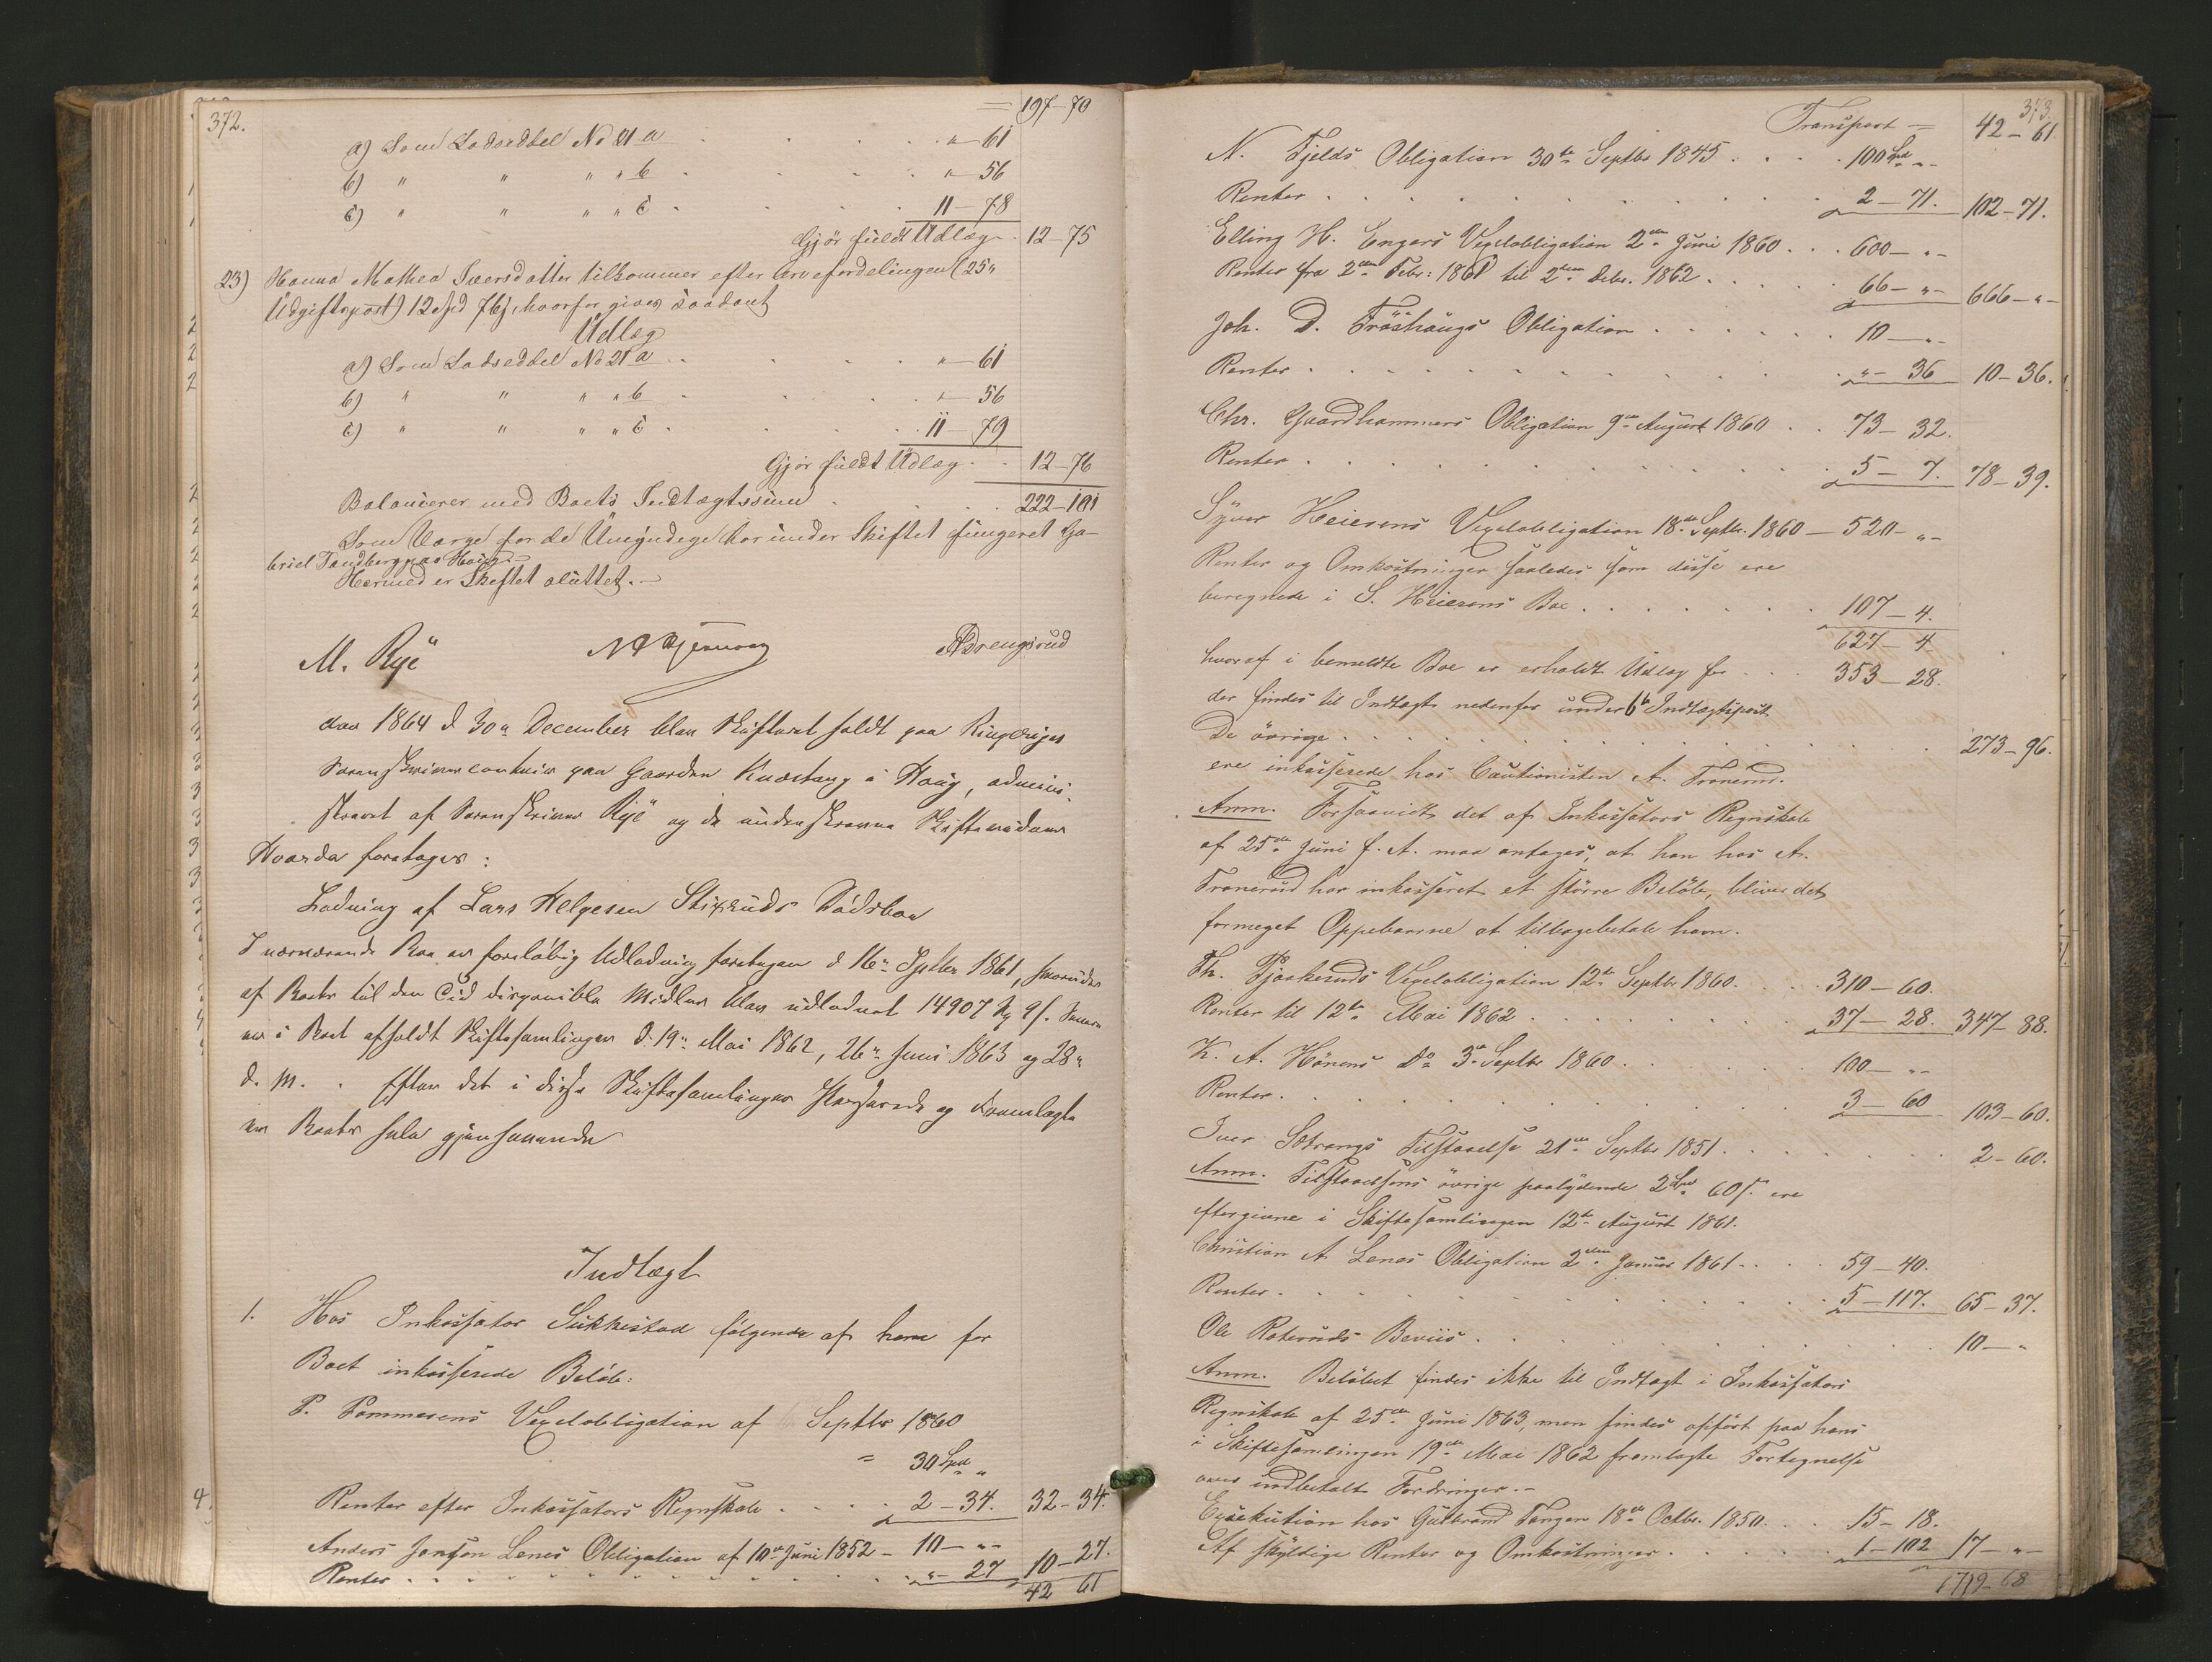 372.
= 197-70
a) Som Lodseddel No 21 a . . . " - 61
b) " " " " b . . . " - 56
c) " " " " c . . . 11 - 78
Gjør fuldt Udlæg . 12-75
23) Hanna Mathea Iversdatter tilkommer efter Arvefordelingen (25de
Udgiftspost) 12 Spd 76 s, hvorfor gives saadant
Udlæg
a) Som Lodseddel No 21 a . . . " - 61
b) " " " " b . . . " - 56
c) " " " " c . . . 11 - 79
Gjør fuldt Udlæg . . 12-76
Balancerer med Boets Indtægtssum . . . 222-101
Som Værge for de Umyndige har under Skiftet fungeret Ga-
briel Tandberg paa Houg. -
Hermed er Skiftet sluttet. -
M. Rye
Aar 1864 d 30te December blev Skifteret holdt paa Ringeriges
Sorenskrivercontoir paa Gaarden Knæstang i Houg, admini-
streret af Sorenskriver Rye og de underskrevne Skiftevidner
Hvorda foretoges:
Lodning af Lars Helgesen Stixruds Dødsboe
I nærværende Boe er foreløbig Udlodning foretagen d 16de Septbr 1861, hvorunder
af Boets til den Tid disponible Midler blev udloddet 14907 Spd 9 s. Senere
er i Boet afholdt Skiftesamlinger d. 19de Mai 1862, 26de Juni 1863 og 28de
d. M. . Efter det i disse Skiftesamlinger Passerede og Fremlagte
er Boets hele gjenstaaende
Indtægt
1. Hos Inkassator Sukkestad følgende af ham for
Boet inkasserede Beløb:
P. Pommesens Vexelobligation af Septbr 1860
= 30 Spd "
Renter efter Inkassators Regnskab . . . . 2-34. 32-34.
Anders Jonsson Lenes Obligation af 10de Juni 1852 - 10 - " -
Renter . . . . " - 27 10-27.
42 61
373.
Transport = 42-61
N. Fjelds Obligation 30te Septbr 1845 . . . . 100 Spd " -
Renter . . . . 2-71. 102-71.
Elling H. Engers Vexelobligation 2den Juni 1860 . . . 600 - " -
Renter fra 2den Febr: 1861 til 2den Debr. 1862 . . . . 66 - " - 666 - " -
Joh. D. Frøshaugs Obligation . . . . 10 - " -
Renter . . . . " - 36 10-36.
Chr. Gaardhammers Obligation 9de August 1860 . . 73-32.
Renter . . . . 5-7. 78-39.
Syver Heiersens Vexelobligation 18de Septbr. 1860 - 520 - " -
Renter og Omkostninger saaledes som disse ere
beregnede i S. Heierens Boe . . . . 107-4.
627-4
hvoraf i bemeldte Boe er erholdt Udlæg for . . . 353-28.
der findes til Indtægt nedenfor under 6te Indtægtspost
De øvrige . . . . 273-96.
ere inkasserede hos Cautionisten A. Tronerud.
Anm. Forsaavidt det af Inkassators Regnskab
af 25de Juni f. A. maa antages, at han hos A.
Tronerud har inkasseret et større Beløb, bliver det
formeget Oppebaarne at tilbagebetale ham.
Th. Fjoakeruds Vexelobligation 12te Septbr 1860 . . . . 310-60.
Renter til 12te Mai 1862 . . . . 37-28. 347-88.
K. A. Hønens Do 3de Septbr 1860 . . . . 100 - " -
Renter . . . . 3-60 103-60.
Iver Setrangs Tilstaaelse 21de Septbr 1851 . . . . 2-60.
Anm. Tilstaaelsens øvrige paalydende 2 Spd 60 s. ere
eftergivne i Skiftesamlingen 12te August 1861.
Christian A. Lenes Obligation 2den Januar 1861 . . . . 59-40.
Renter . . . . 5-117. 65-37.
Ole Roteruds Beviis . . . . 10 - "
Anm. Beløbet findes ikke til Indtægt i Inkassators
Regnskab af 25de Juni 1863, men findes opført paa hans
i Skiftesamlingen 19de Mai 1862 fremlagte Fortegnelse
over indbetalte Fordringer. -
Exsekution hos Gulbrand Tangen 18de Octbr. 1850 . . . 15-18.
Af skyldige Renter og Omkostninger . . . . 1-102 17 - " -
1719-68